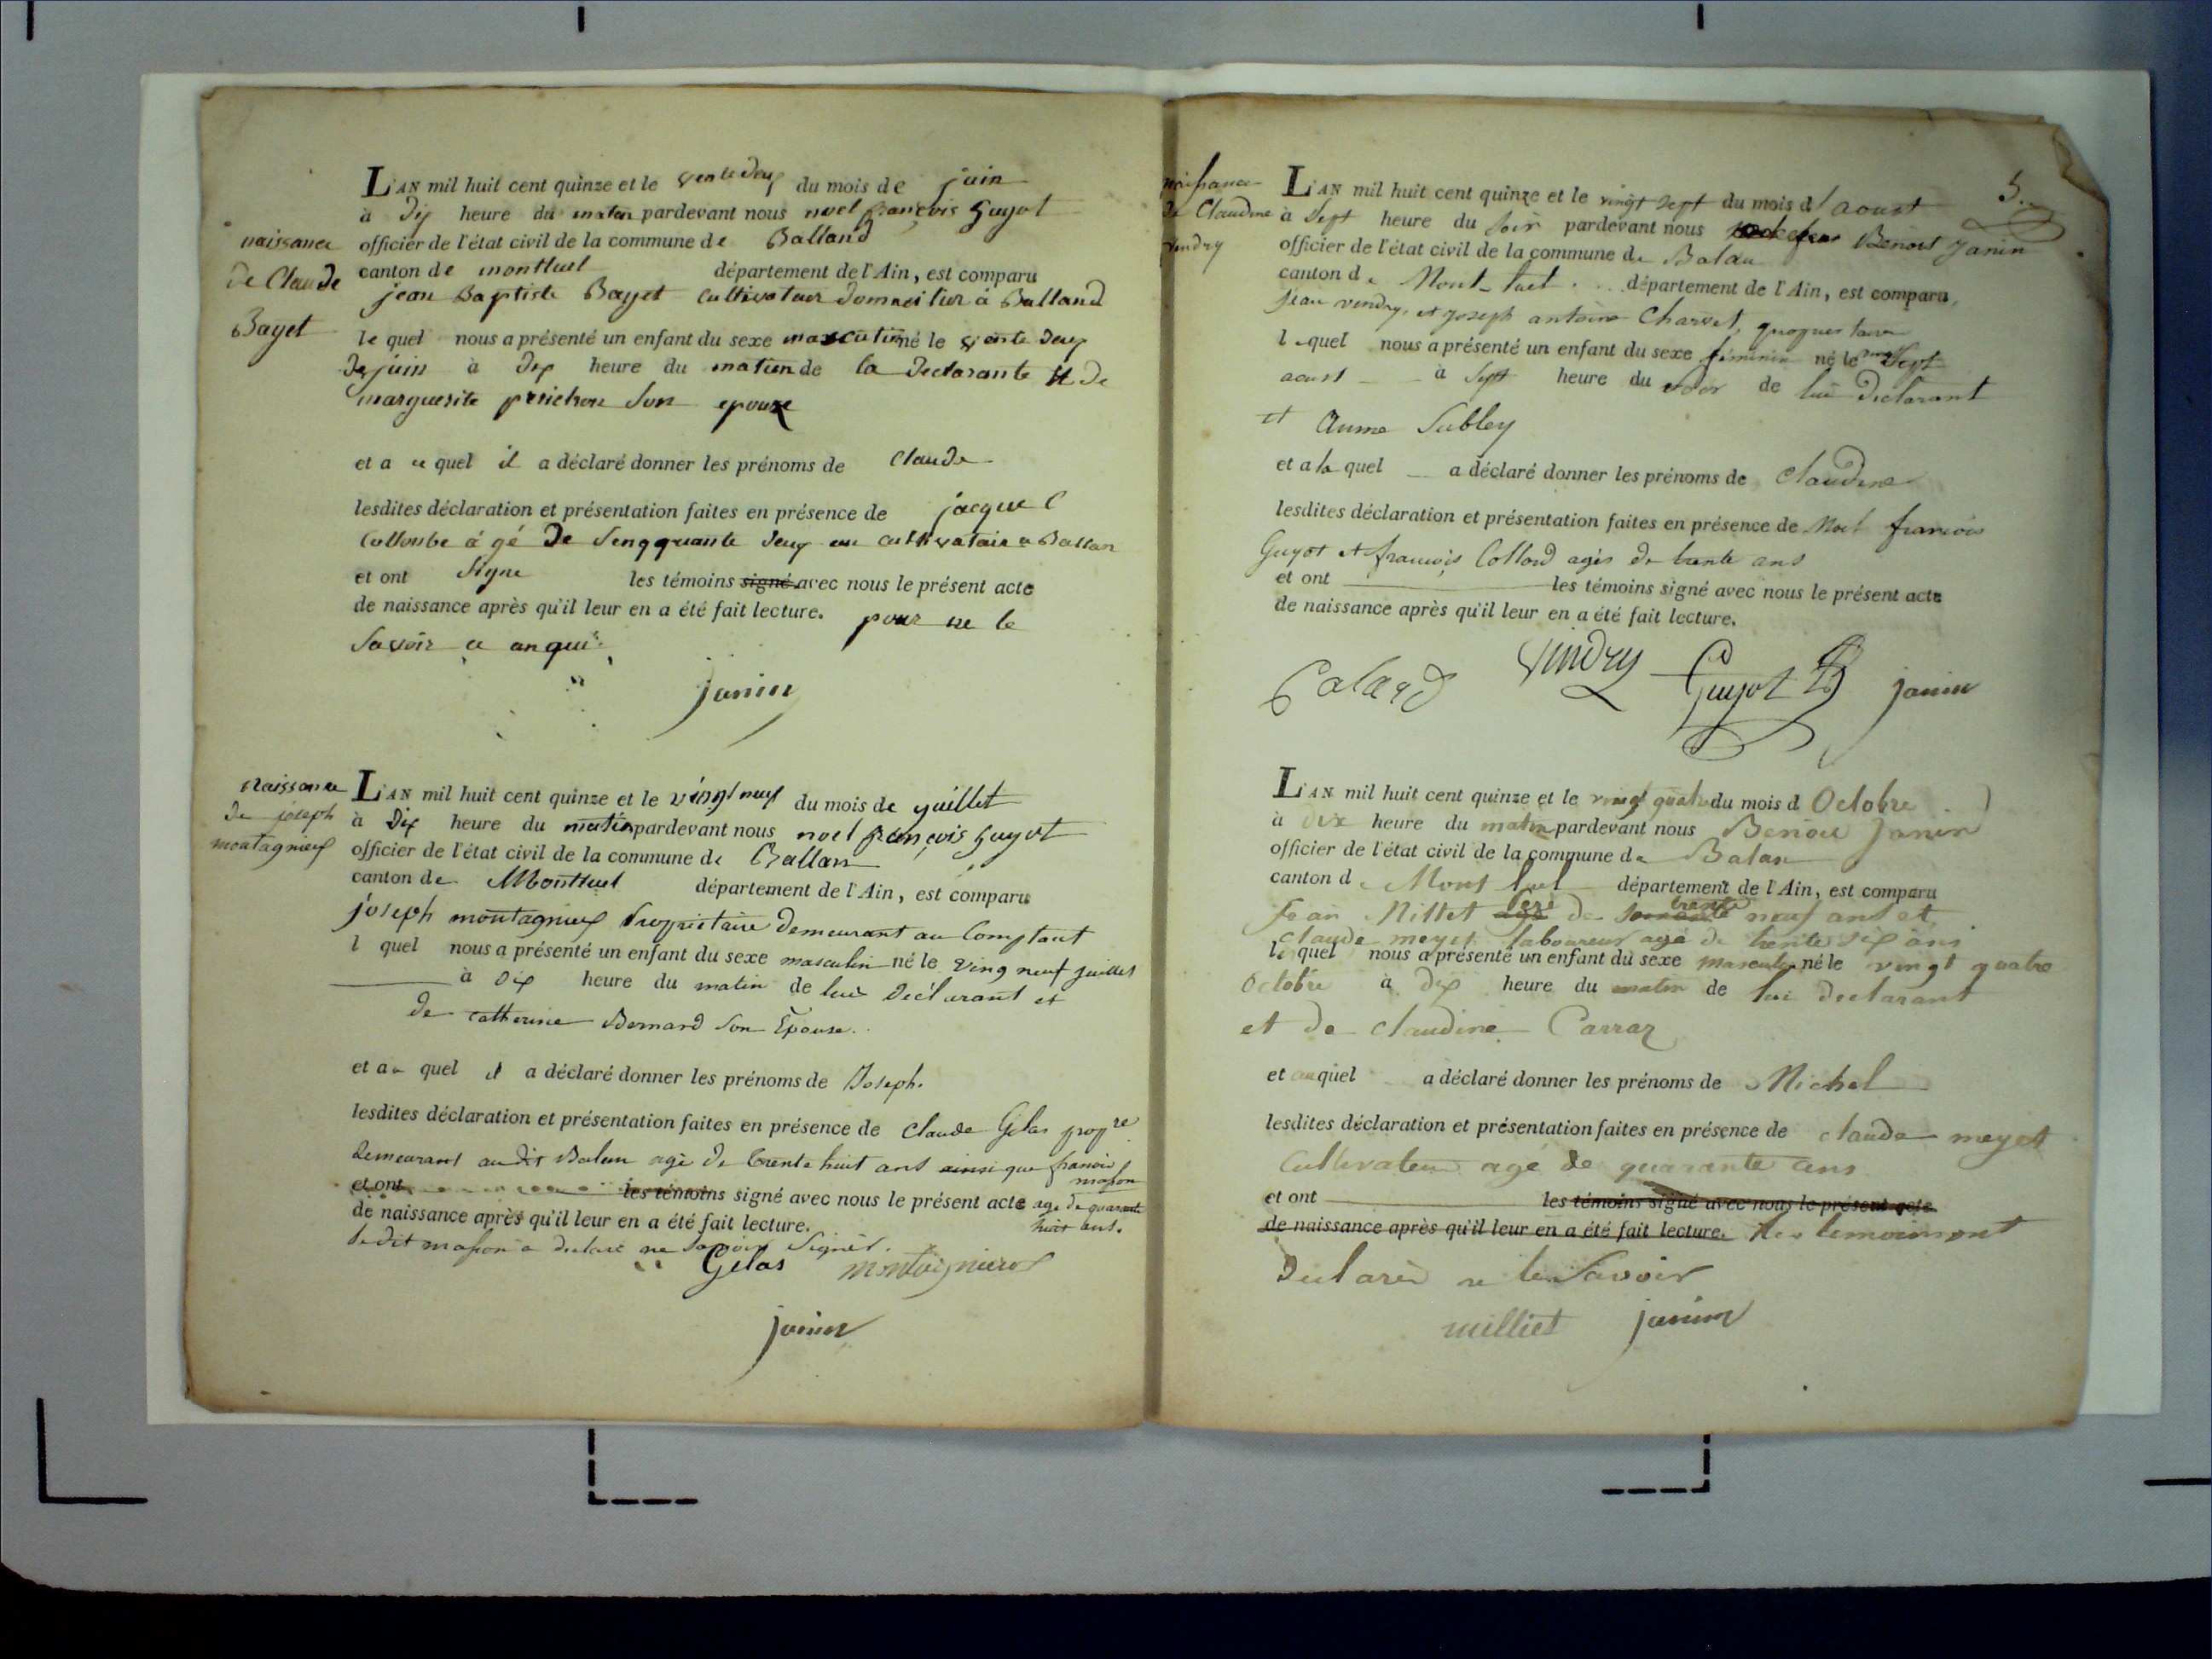 L'AN mil huit cent quinze et le vente deux du mois de juin
à dix heure du matin pardevant nous noel françois Guyot
officier de l'état civil de la commune de Balland
canton de montluel département de l'Ain, est comparu
jean Baptiste Bayet cultivateur domicilier à Balland
le quel nous a présenté un enfant du sexe masculin né le vente deux
de juin à dix heure du matin de la declarante et de
marguerite perichon son epouze
et a ce quel il a déclaré donner les prénoms de Claude
lesdites déclaration et présentation faites en présence de jacque C
Collonbe agé de sengquante deux an cultivatair a Ballan
et ont signe les témoins signé avec nous le présent acte
de naissance après qu'il leur en a été fait lecture. pour ne le
savoir a anqui
janin
naissance
de Claude
Bayet
naissance
de joseph
montagnieux
L'AN mil huit cent quinze et le vingt neuf du mois de yuillet
à Dix heure du matin pardevant nous noel françois Guyot
officier de l'état civil de la commune de Ballan
canton de Montluel département de l'Ain, est comparu
joseph montagnieux Propriétaire demeurant au Comptant
l quel nous a présenté un enfant du sexe masculin né le ving neuf juillet
à dix heure du matin de lui Déclarant et
de catherine Bernard son Epouse.
et au quel il a déclaré donner les prénoms de Joseph.
lesdites déclaration et présentation faites en présence de Claude Gelas propre
demeurant audit Balan agé de trente huit ans ainsi que francois
mason
et ont les témoins signé avec nous le présent acte agé de quarante
de naissance après qu'il leur en a été fait lecture. huit ans.
le dit mason a declaré ne savoir signer.
Gelas montagnieux
janin
5.
naissance
de Claudine
vindry
L'AN mil huit cent quinze et le vingt sept du mois d'aoust
à sept heure du soir pardevant nous Benoit Janin
officier de l'état civil de la commune de Balan
canton de Mont-luel département de l'Ain, est comparu,
jean vindry, et joseph antoine Charvet,
lequel nous a présenté un enfant du sexe féminin né le vingt sept
aoust à sept heure du soir de lui déclarant
et Anne Subley
et a la quel a déclaré donner les prénoms de Claudine
lesdites déclaration et présentation faites en présence de Noel francois
Guyot et françois Collard agés de trente ans
et ont les témoins signé avec nous le présent acte
de naissance après qu'il leur en a été fait lecture.
Calard Vindry Guyot janin
L'AN mil huit cent quinze et le vingt quatre du mois d Octobre
à dix heure du matin pardevant nous Benoit Janin
officier de l'état civil de la commune de Balan
canton de Mont luel département de l'Ain, est comparu
Jean Milliet de trente neuf ans et
claude meyet laboureur agé de trente six ans
le quel nous a présenté un enfant du sexe masculin né le vingt quatre
Octobre à dix heure du matin de lui declarant
et de claudine Carraz
et au quel a déclaré donner les prénoms de Michel
lesdites déclaration et présentation faites en présence de claude meyet
Cultivateur agé de quarante ans
et ont les témoins signé avec nous le présent acte
de naissance après qu'il leur en a été fait lecture. les temoins ont
Declaré ne le savoir
milliet janin